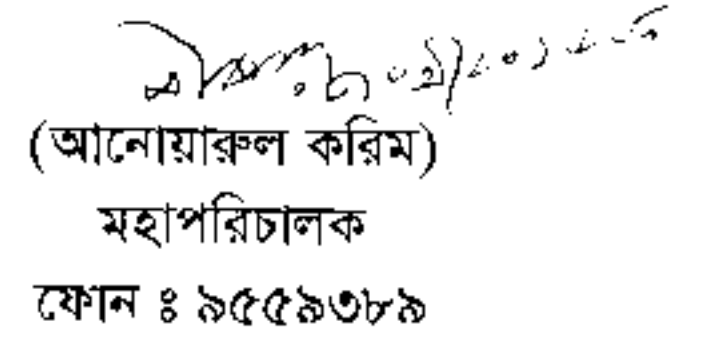 (আনোয়ারুল করিম)
মহাপরিচালক
ফোন ঃ ৯৫৫৯৩৮৯